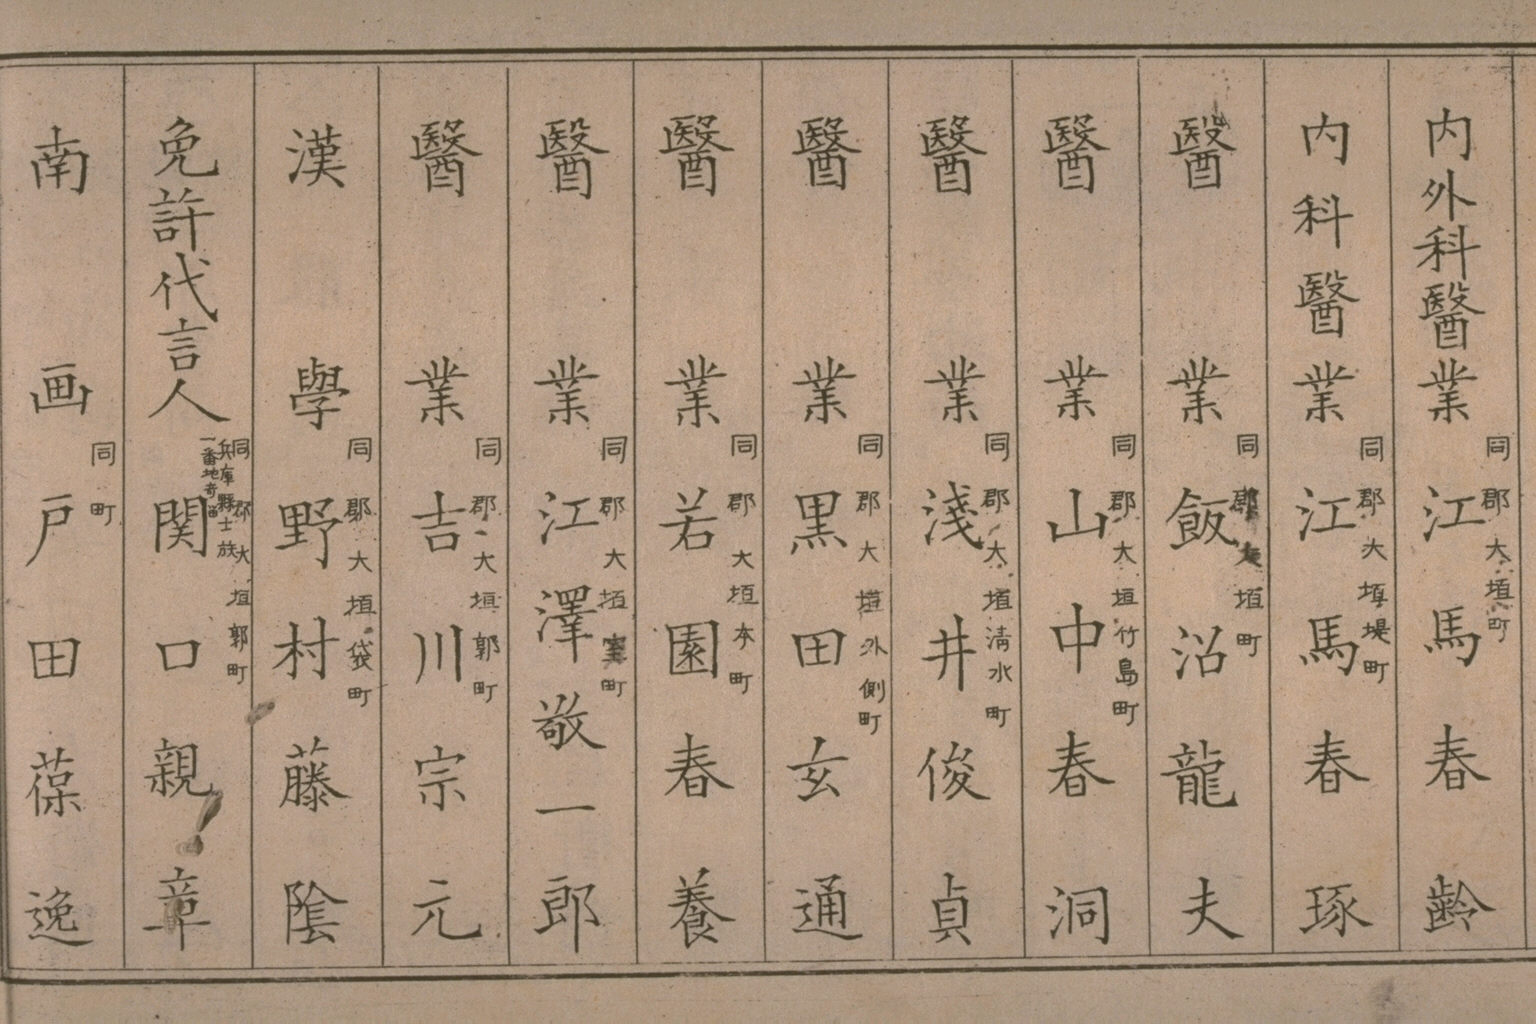 内外科醫業 同郡大垣町 江馬春齡
内科醫業 同郡大垣堤町 江馬春琢
醫業 同郡大垣町 飯沼龍夫
醫業 同郡大垣竹島町 山中春洞
醫業 同郡大垣清水町 淺井俊貞
醫業 同郡大垣外側町 黒田玄通
醫業 同郡大垣本町 若園春養
醫業 同郡大垣町 江澤敬一郎
醫業 同郡大垣郭町 吉川宗元
漢學 同郡大垣袋町 野村藤陰
免許代言人 同郡大垣郭町 兵庫縣士族 一番地寄留 関口親章
南画 同町 戸田葆逸